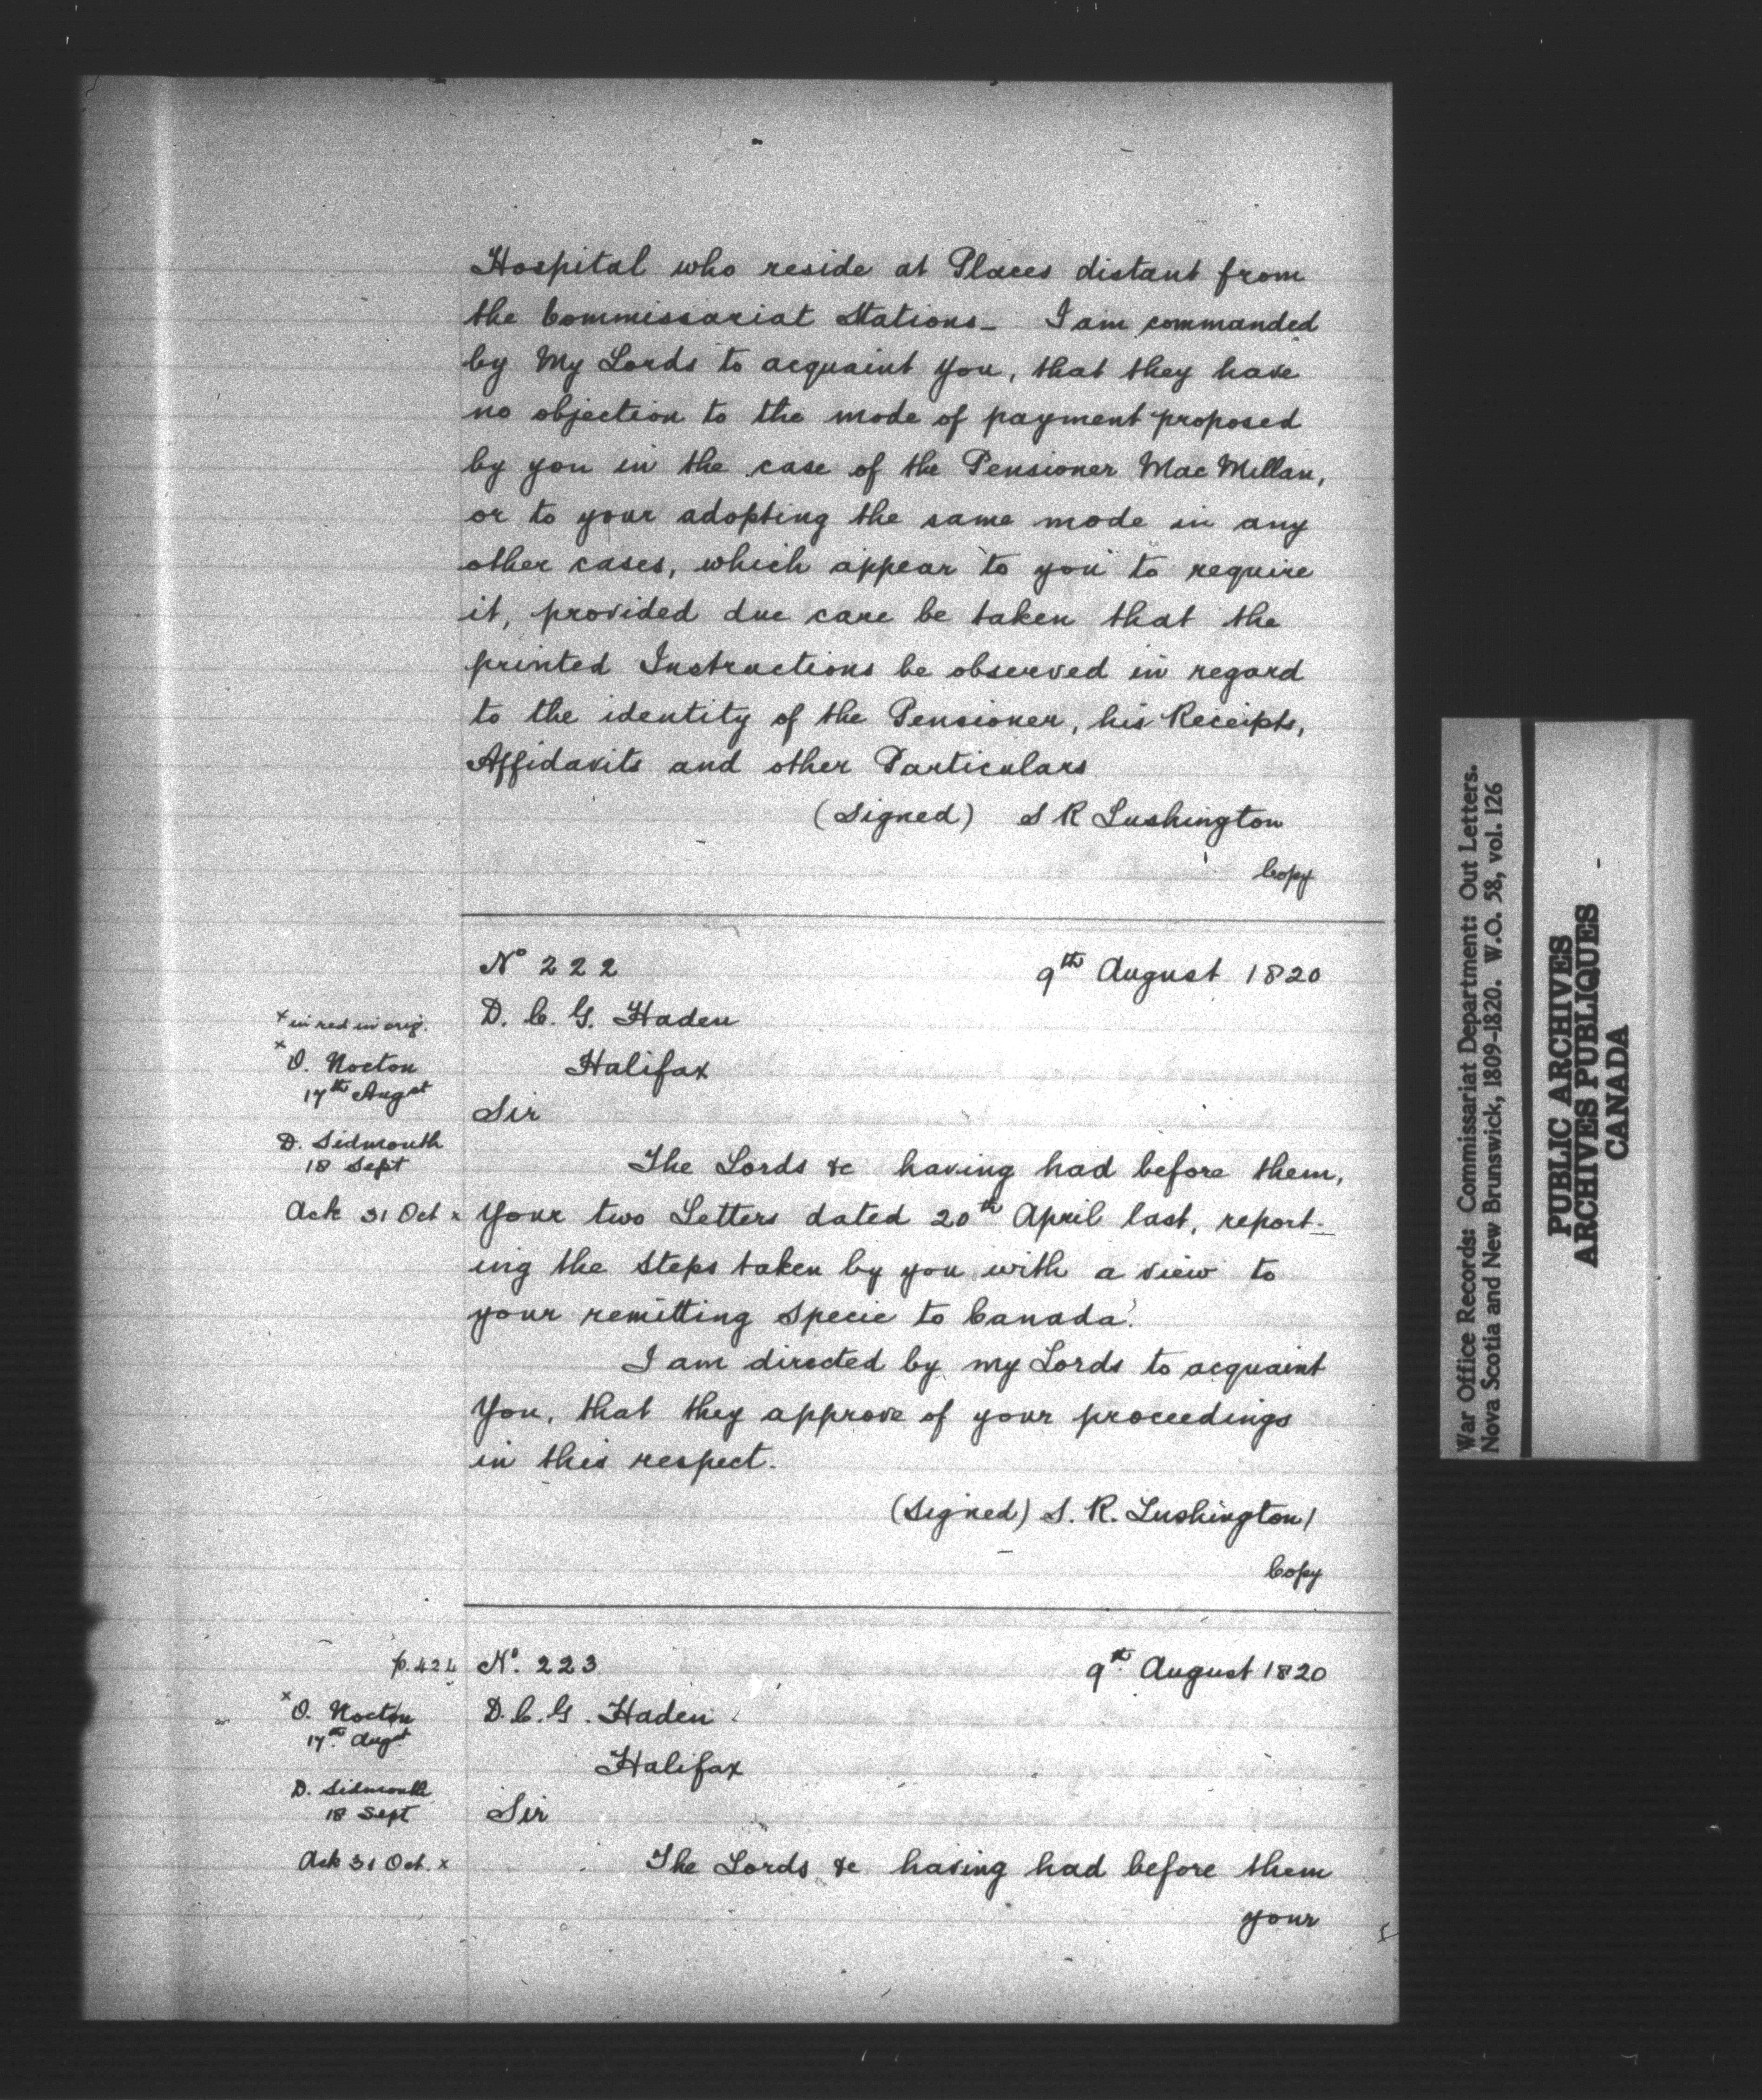 Hospital who reside at Places distant from
the Commissariat Stations_ I am commanded
by My Lords to acquaint You, that they have
no objection to the mode of payment proposed
by you in the case of the Pensioner Mac Millan,
or to your adopting the same mode in any
other cases, which appear to you to require
it, provided due care be taken that the
printed Instructions be observed in regard
to the identity of the Pensioner, his Receipts,
Affidavits and other Particulars
(Signed) S R Lushington
Copy
No 222
9th August 1820
x in red in orig.
D. C. G. Haden
x O. Nocton
17th Augst
Halifax
Sir
D. Sidmouth
18 Sept
The Lords &c having had before them,
Ack 31 Oct x
Your two Letters dated 20th April last, report-
ing the Steps taken by you with a view to
your remitting Specie to Canada.
I am directed by my Lords to acquaint
You, that they approve of your proceedings
in this respect.
(Signed) S. R. Lushington/
Copy
No. 223
9th August 1820
x O. Nocton
17th Augt
D. C. G. Haden
Halifax
D. Sidmouth
18 Sept
Sir
Ack 31 Oct. x
The Lords &c having had before them
your
War Office Records: Commissariat Department: Out Letters.
Nova Scotia and New Brunswick, 1809-1820. W.O. 58, vol. 126
PUBLIC ARCHIVES
ARCHIVES PUBLIQUES
CANADA